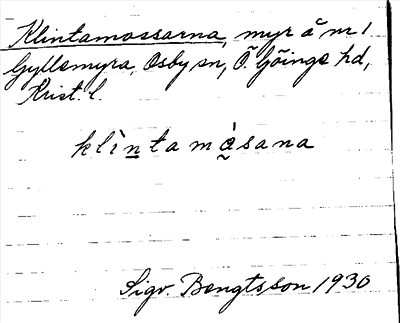 Klintamossarna, myr å nr 1
Gyllsmyra, Osby sn, Ö. Göinge hd,
Krist. l.
klìn̲ta mɑ̰̀sana
Sigv. Bengtsson 1930